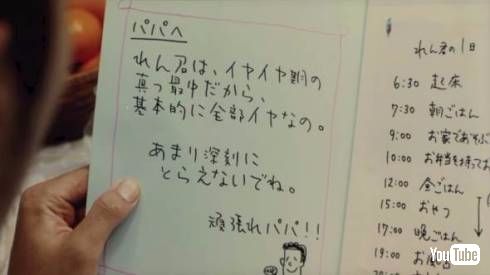 パパへ
れん君は、イヤイヤ期の
真っ最中だから、
基本的に全部イヤなの。
あまり深刻に
とらえないでね。
頑張れパパ!!
れん君の1日
6:30 起床
7:30 朝ごはん
9:00 お家であそぶ
10:00 お弁当を持ってお
12:00 昼ごはん
15:00 おやつ
17:00 晩ごはん
19:00 お風呂
20:00
YouTube